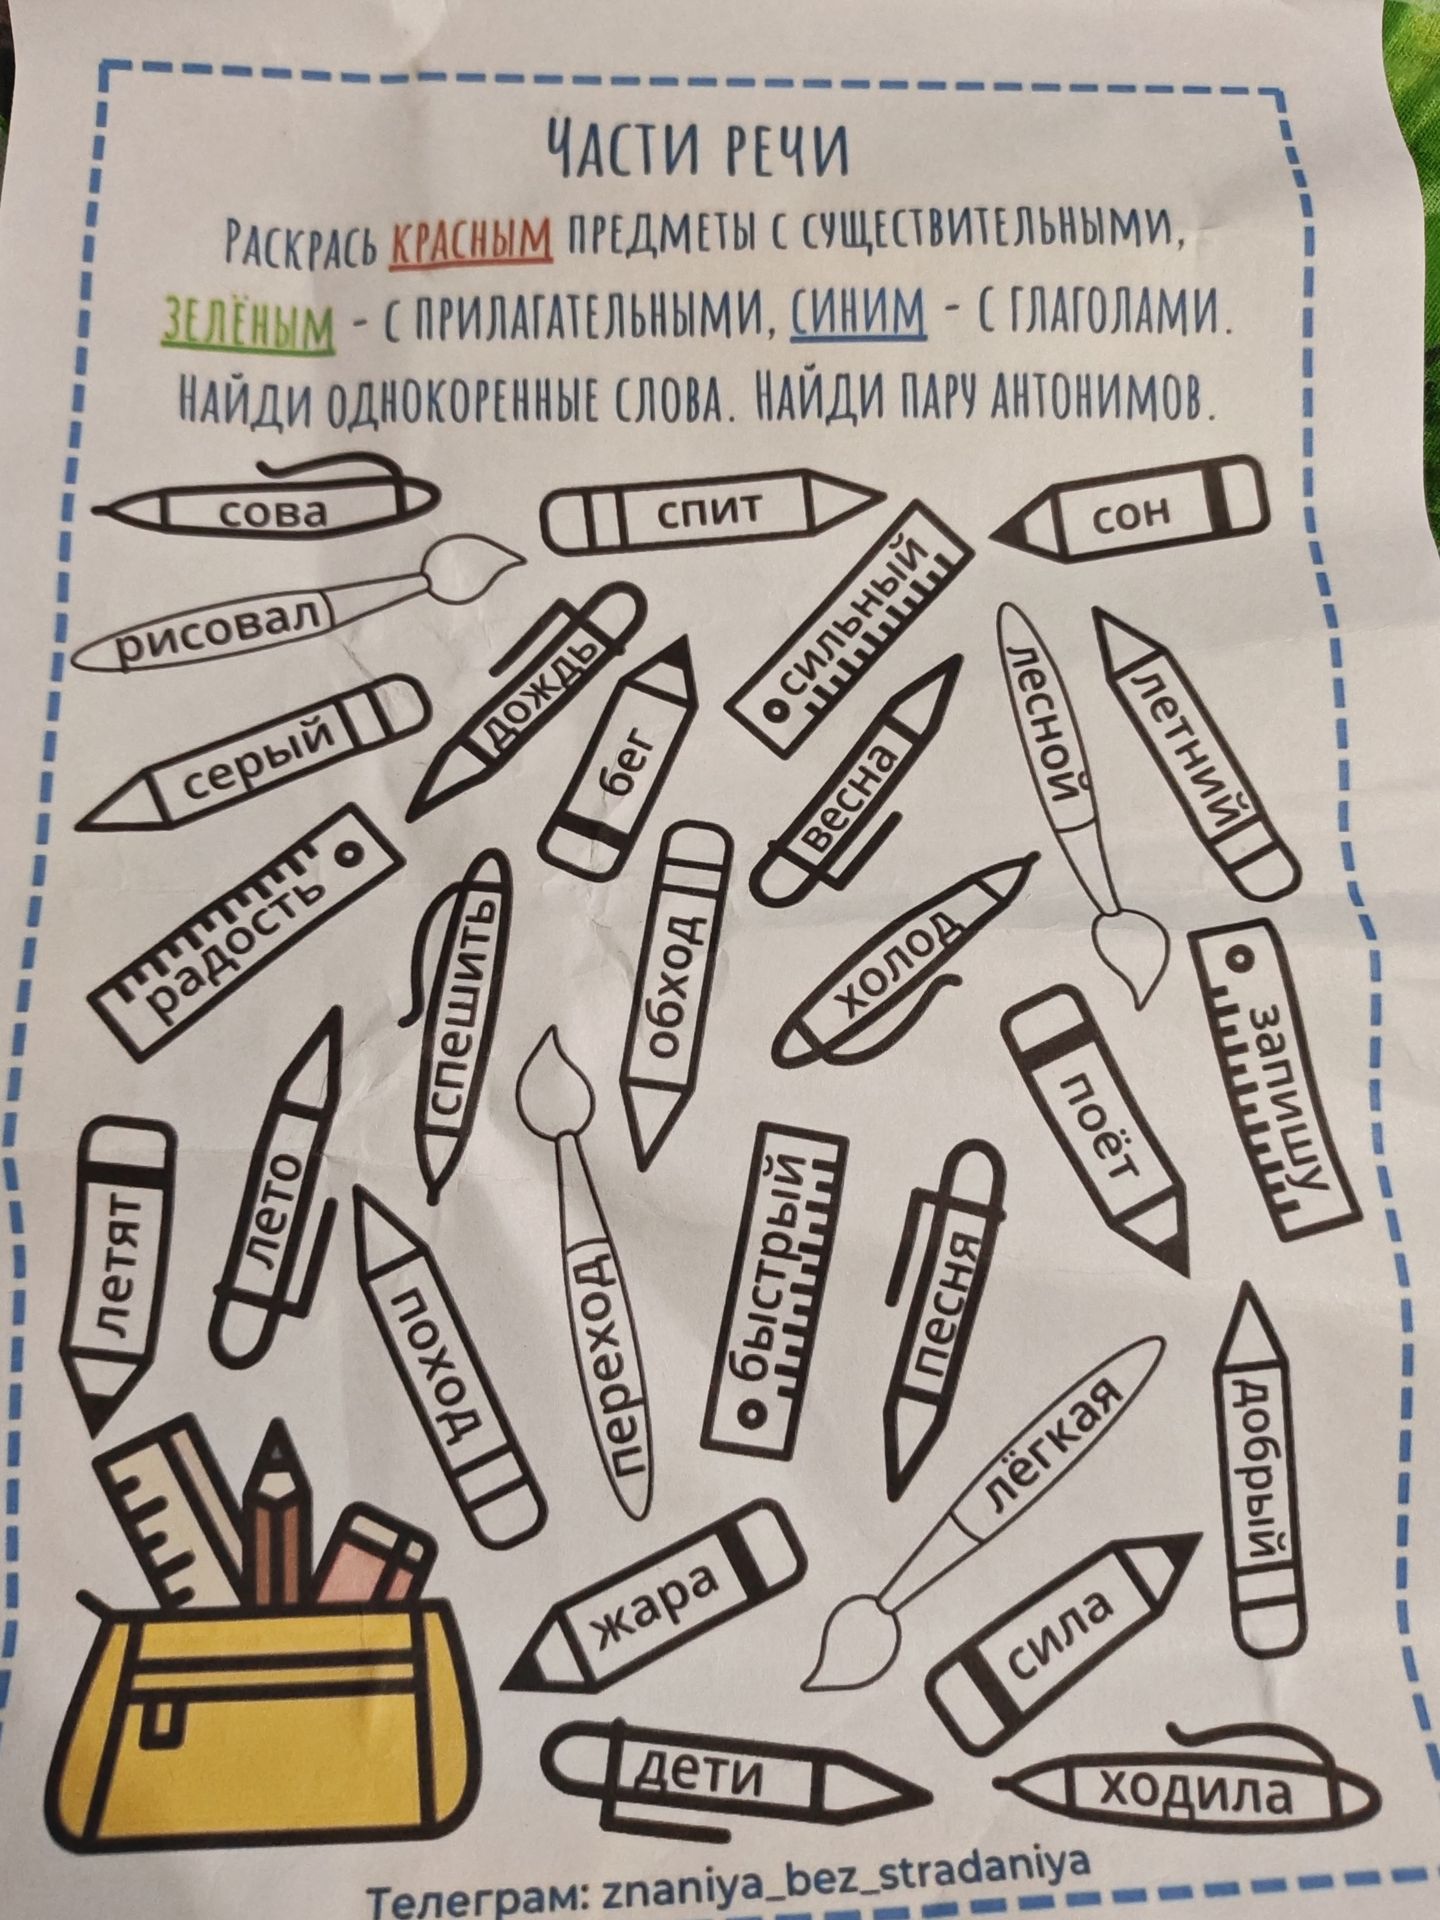 Части речи
Раскрась красным предметы с существительными,
зелёным - с прилагательными, синим - с глаголами.
Найди однокоренные слова. Найди пару антонимов.
сова
спит
сон
рисовал
дождь
сильный
серый
бег
весна
лесной
летний
радость
спешить
обход
холод
запишу
летят
лето
поёт
поход
переход
быстрый
песня
добрый
лёгкая
жара
сила
дети
ходила
Телеграм: znaniya_bez_stradaniya